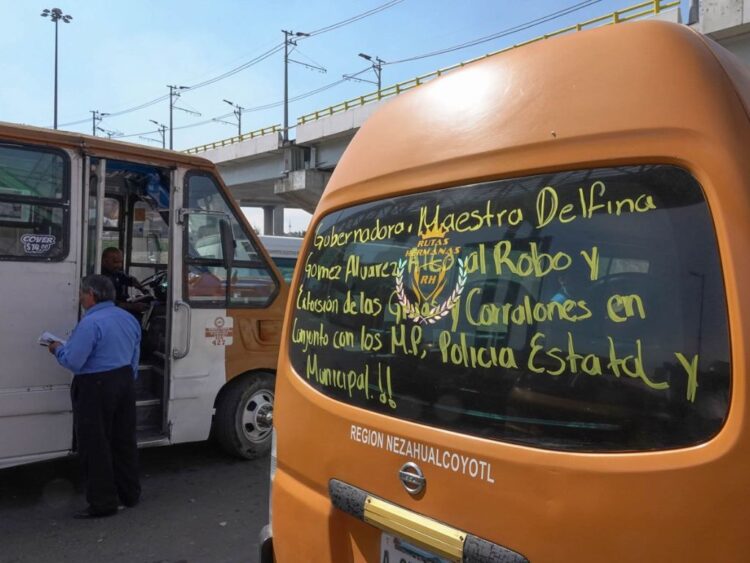 COVER
$14.00
427
Gobernadora. Maestra Delfina
Gomez Alvarez Alto al Robo y
Extorsión de las Gruas y Corralones en
Conjunto con los M.P, Policia Estatal y
Municipal.!!
RUTAS
HERMANAS
RH
REGION NEZAHUALCOYOTL